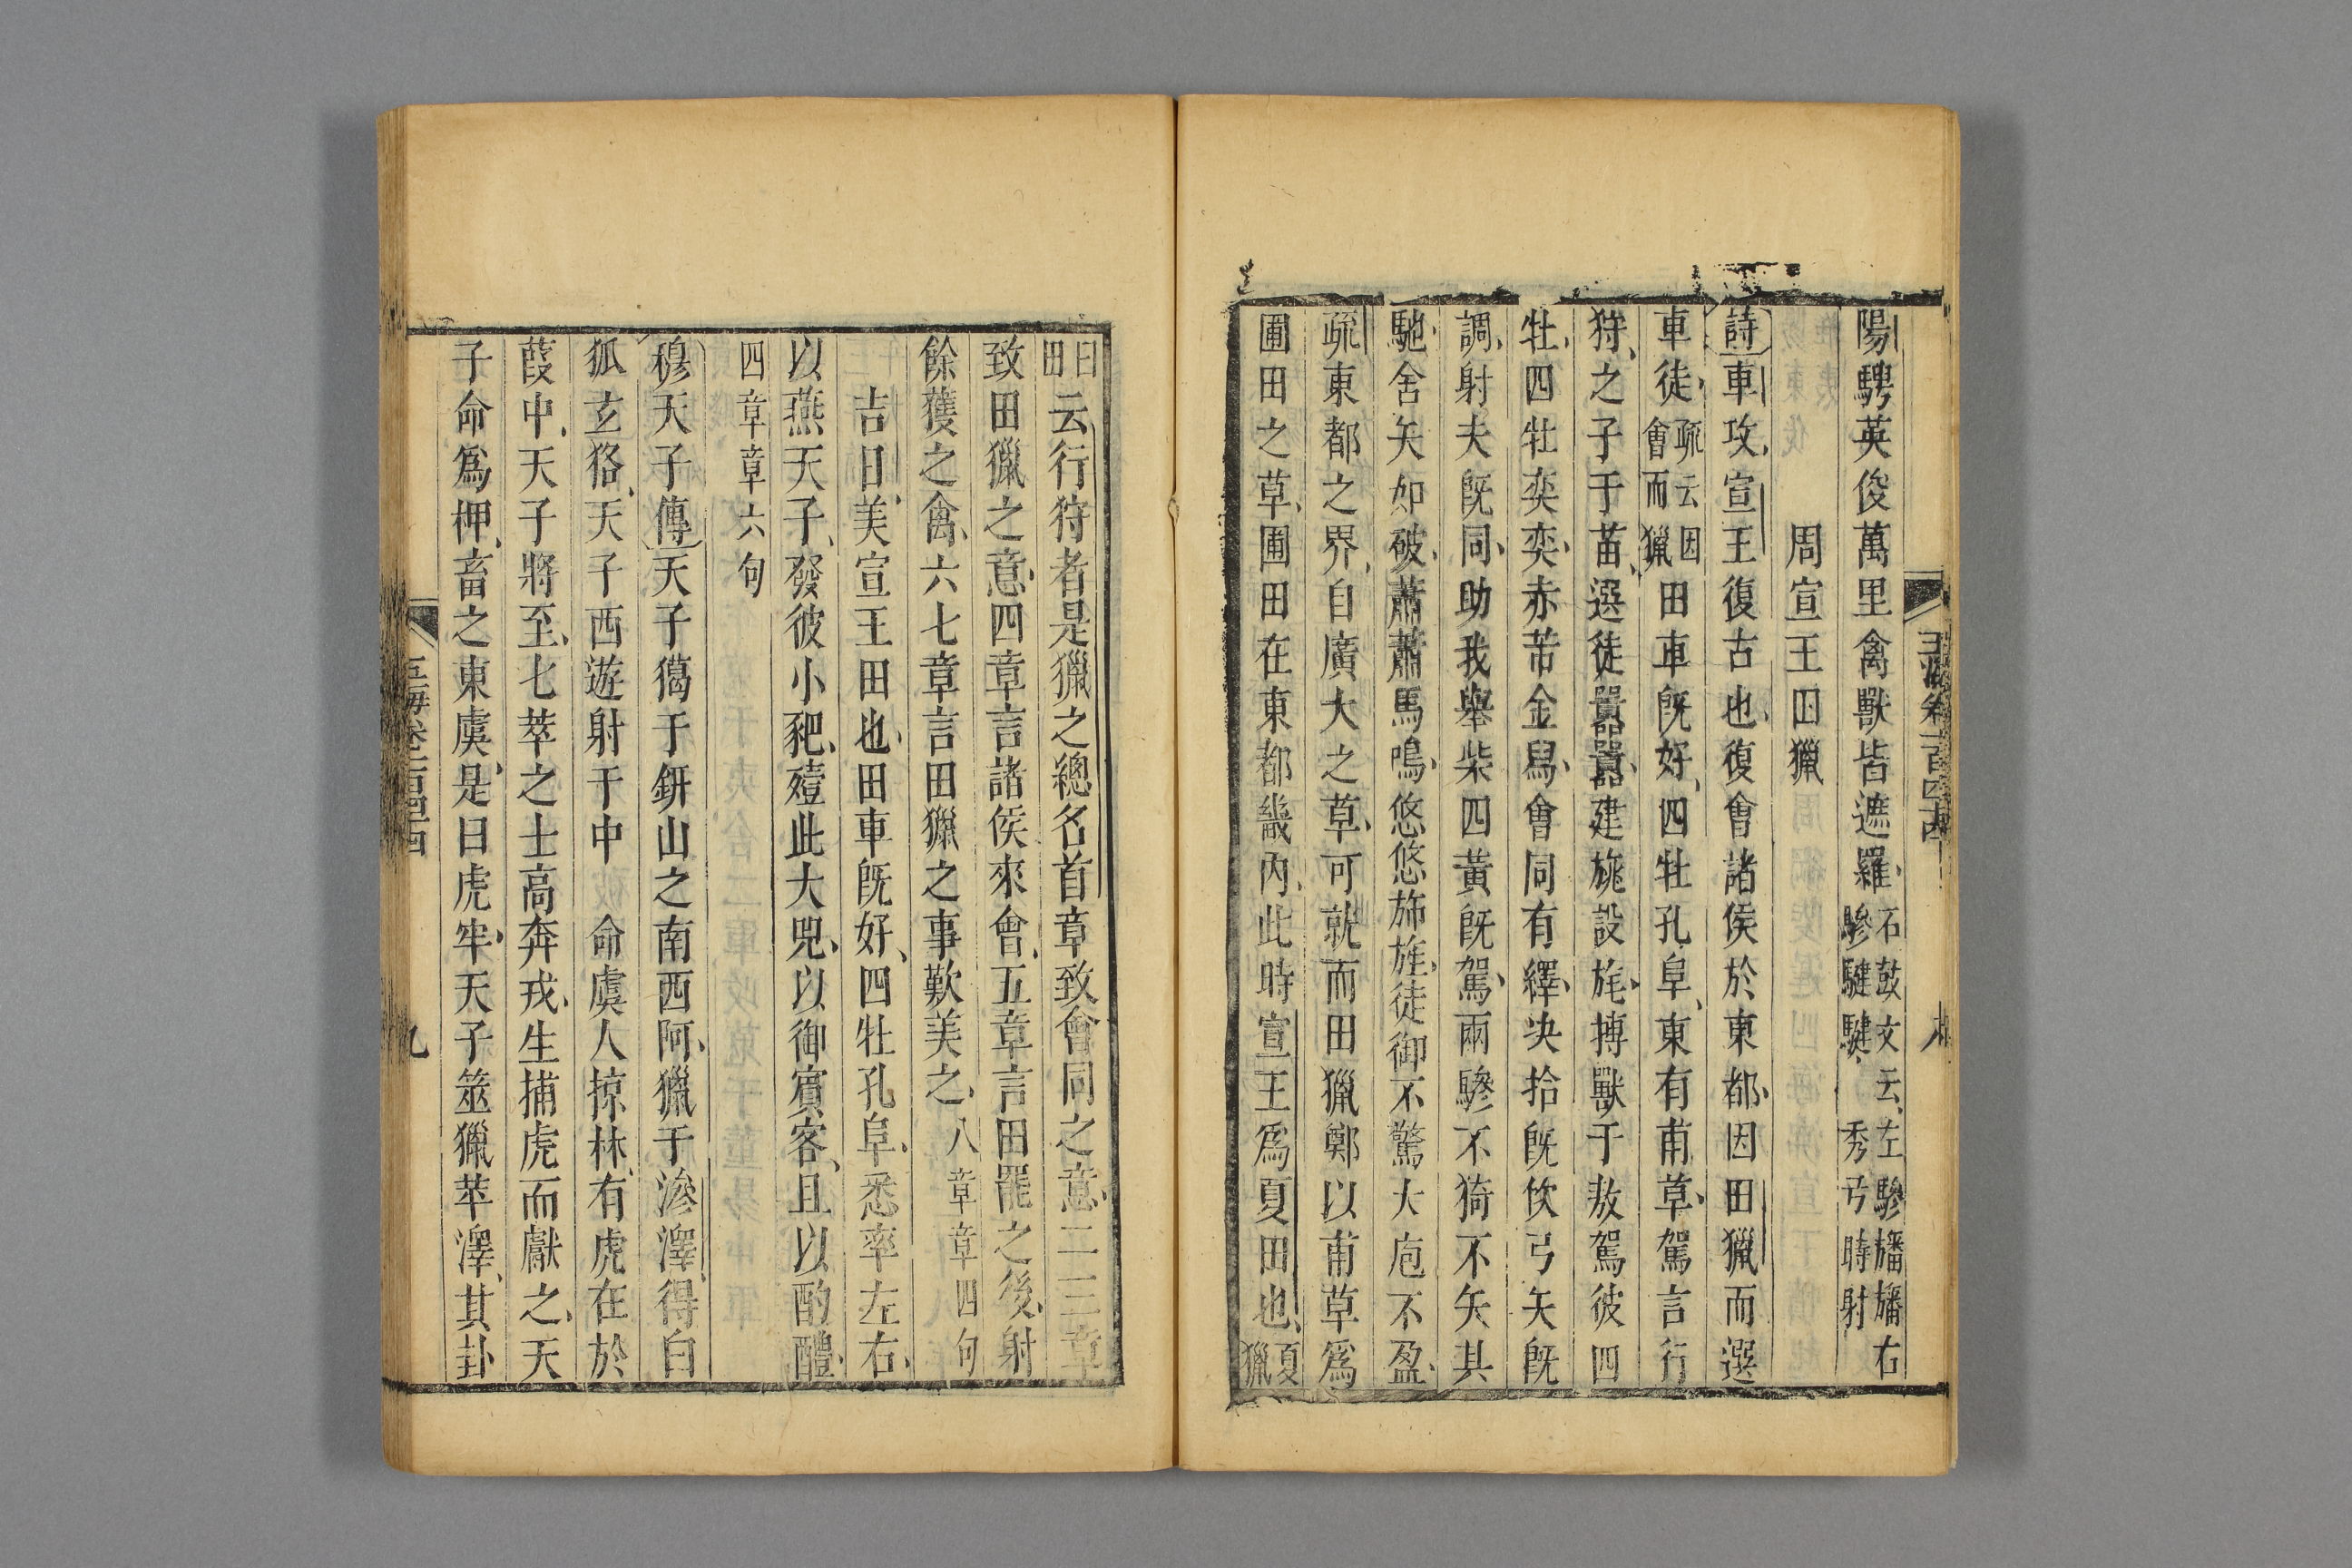 陽騁英俊萬里禽獸皆遮羅石鼓文云左驂旛旛右驂騝騝秀弓時射
周宣王田獵
詩車攻宣王復古也復會諸侯於東都因田獵而選
車徒疏云因會而獵田車旣好四牡孔阜東有甫草駕言行
狩之子于苗選徒囂囂建旐設旄搏獸于敖駕彼四
牡四牡奕奕赤芾金舄會同有繹决拾旣佽弓矢旣
調射夫旣同助我舉柴四黃旣駕兩驂不猗不失其
馳舍矢如破蕭蕭馬鳴悠悠斾旌徒御不驚大庖不盈
疏東都之界自廣大之草可就而田獵鄭以甫草爲
圃田之草圃田在東都畿內此時宣王爲夏田也夏獵
曰田云行狩者是獵之總名首章致會同之意二三章
致田獵之意四章言諸侯來會五章言田罷之後射
餘獲之禽六七章言田獵之事歎美之八章章四句
吉日美宣王田也田車旣好四牡孔阜悉率左右
以燕天子發彼小豝殪此大兕以御賓客且以酌醴
四章章六句
穆天子傳天子獵于鈃山之南西阿獵于滲澤得白
狐玄狢天子西遊射于中 命虞人掠林有虎在於
葭中天子將至七萃之士高奔戎生捕虎而獻之天
子命爲柙畜之東虞是曰虎牢天子筮獵苹澤其卦
玉海卷一百四十四
九